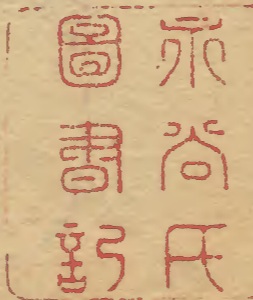 谷氏
圖書記